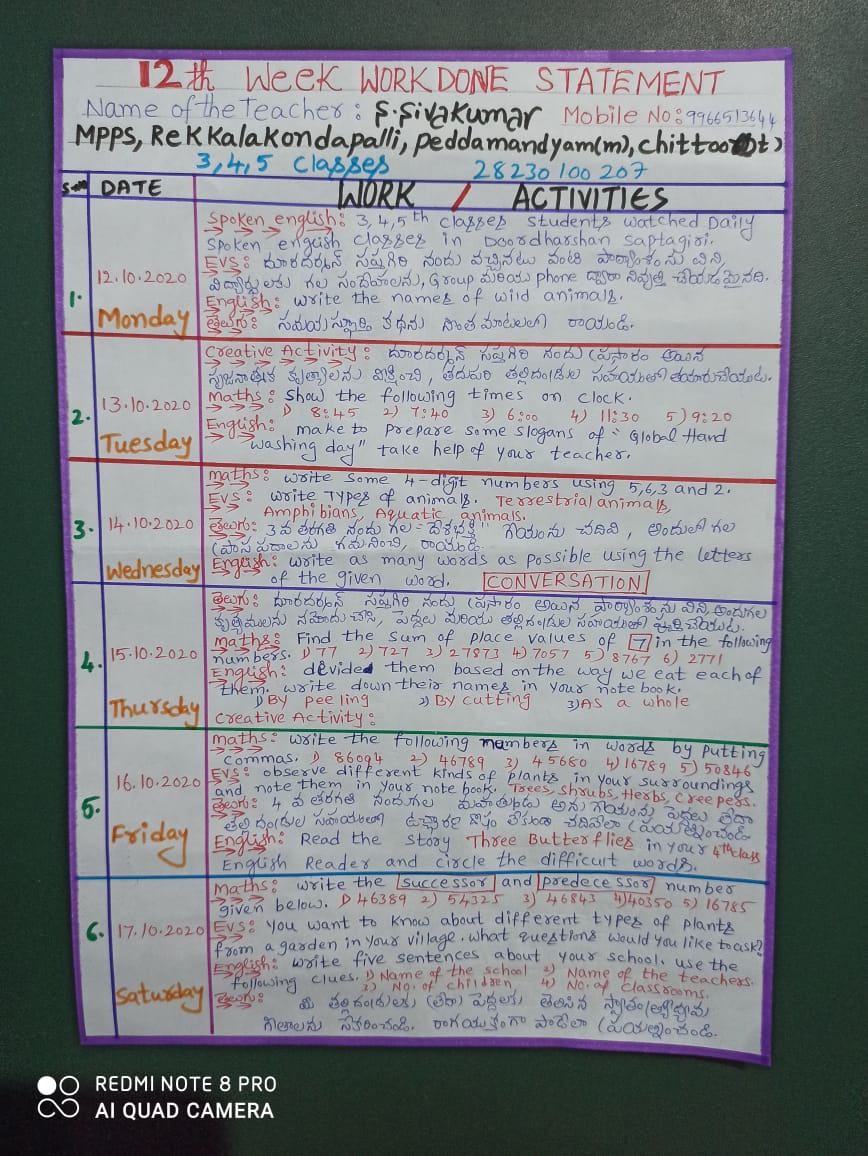 12th Week WORK DONE STATEMENT
Name of the Teacher: S.Sivakumar Mobile No: 9966513644
MPPS, Rekkalakondapalli, peddamandyam(m), chittoor(Dt)
3,4,5 classes 28230100207
DATE WORK / ACTIVITIES
Spoken english: 3,4,5th classes students watched Daily
Spoken english classes in Doordharshan saptagiri.
EVS: దూరదర్శన్ సప్తగిరి నందు వచ్చినటు వంటి పాఠ్యాంశంను విని,
12.10.2020 విద్యార్థులకు గల సందేహాలను, Group మరియు phone ద్వారా నివృత్తి చేయడమైనది.
1. English: write the names of wild animals.
Monday తెలుగు: సమయస్ఫూర్తి కథను సొంత మాటలలో రాయండి.
Creative Activity: దూరదర్శన్ సప్తగిరి నందు ప్రసారం అయిన
సృజనాత్మక కృత్యాలను వీక్షించి, తదుపరి తల్లిదండ్రుల సహాయంతో తయారుచేయుట.
13.10.2020 Maths: Show the following times on clock.
2. 1) 8:45 2) 7:40 3) 6:00 4) 11:30 5) 9:20
Tuesday English: make to prepare some slogans of "Global Hand
washing day" take help of your teacher.
maths: write some 4-digit numbers using 5,6,3 and 2.
EVS: write Types of animals. Terrestrial animals,
Amphibians, Aquatic animals.
3. 14.10.2020 తెలుగు: 3వ తరగతి నందు గల "దేశభక్తి" గేయంను చదివి, అందులో గల
ప్రాస పదాలను గమనించి, రాయండి.
Wednesday English: write as many words as possible using the letters
of the given word. CONVERSATION
తెలుగు: దూరదర్శన్ సప్తగిరి నందు ప్రసారం అయిన పాఠ్యాంశంను విని, అందుగల
కృత్యములను నమోదు చేసి, పెద్దలు మరియు తల్లిదండ్రుల సహాయంతో పూర్తి చేయుట.
Maths: Find the sum of place values of 7 in the following
4. 15.10.2020 numbers. 1) 77 2) 727 3) 27873 4) 7057 5) 8767 6) 2771
English: devided them based on the way we eat each of
them. write down their names in your note book.
Thursday 1) By peeling 2) By cutting 3) As a whole
Creative Activity:
maths: write the following numbers in words by putting
commas. 1) 86094 2) 46789 3) 45680 4) 16789 5) 50846
16.10.2020 EVS: observe different kinds of plants in your surroundings
and note them in your note book. Trees, Shrubs, Herbs, Creepers.
5. తెలుగు: 4వ తరగతి నందుగల మహాత్ముడు అను గేయంను పెద్దలు లేదా
తల్లిదండ్రుల సహాయంతో ఉచ్చారణ దోషం లేకుండా చదివేలా ప్రయత్నించండి
Friday English: Read the story Three Butterflies in your 4th class
English Reader and circle the difficult words.
Maths: write the successor and predecessor number
given below. 1) 46389 2) 54325 3) 46843 4) 40350 5) 16785
6. 17.10.2020 EVS: you want to know about different types of plants
from a garden in your village. what questions would you like to ask?
English: write five sentences about your school. use the
following clues. 1) Name of the school 2) Name of the teachers.
3) No. of children 4) No. of classrooms.
Saturday తెలుగు: మీ తల్లిదండ్రులకు (లేదా) పెద్దలకు తెలిసిన స్వాతంత్ర్యోద్యమ
గీతాలను సేకరించండి. రాగయుక్తంగా పాడేలా ప్రయత్నించండి.
REDMI NOTE 8 PRO
AI QUAD CAMERA